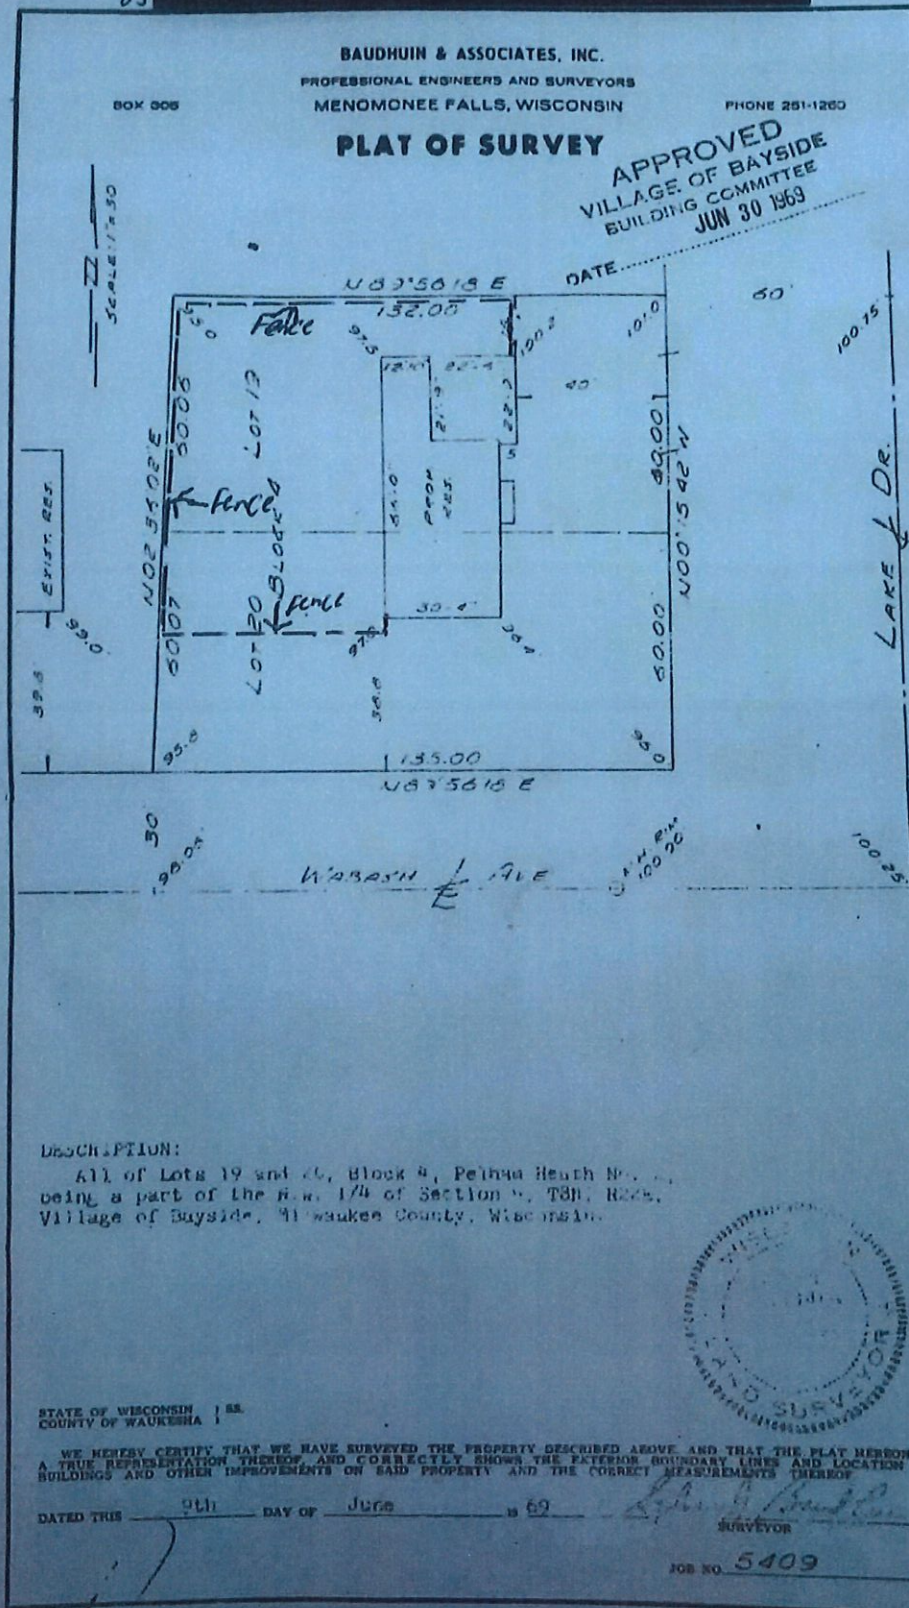 BAUDHUIN & ASSOCIATES, INC.
PROFESSIONAL ENGINEERS AND SURVEYORS
BOX 305
MENOMONEE FALLS, WISCONSIN
PHONE 251-1260
PLAT OF SURVEY
APPROVED
VILLAGE OF BAYSIDE
BUILDING COMMITTEE
JUN 30 1969
DATE
SCALE: 1"=30
N 89°56'18 E
132.00
Fence
60'
100.75
97.5
100.2
101.0
12.0
22.4
22.0
40'
60.06
LOT 19
60.00
Fence
66.0
PROP.
RES.
BLOCK 4
EXIST. RES.
N00°15'42"W
LAKE DR.
60.07
LOT 20
Fence
30.4
60.00
99.0
39.8
38.8
95.8
135.00
N89°56'18 E
30
98.03
WABASH AVE
M.H. RIM
100.20
100.25
DESCRIPTION:
All of Lots 19 and 20, Block 4, Pelham Heath No.
being a part of the N.W. 1/4 of Section T8N,
Village of Bayside, Milwaukee County, Wisconsin.
LAND SURVEYOR
STATE OF WISCONSIN } SS.
COUNTY OF WAUKESHA
WE HEREBY CERTIFY THAT WE HAVE SURVEYED THE PROPERTY DESCRIBED ABOVE AND THAT THE PLAT HEREON
A TRUE REPRESENTATION THEREOF, AND CORRECTLY SHOWS THE EXTERIOR BOUNDARY LINES AND LOCATION
BUILDINGS AND OTHER IMPROVEMENTS ON SAID PROPERTY AND THE CORRECT MEASUREMENTS THEREOF
DATED THIS 9th DAY OF June 19 69
SURVEYOR
JOB NO. 5409